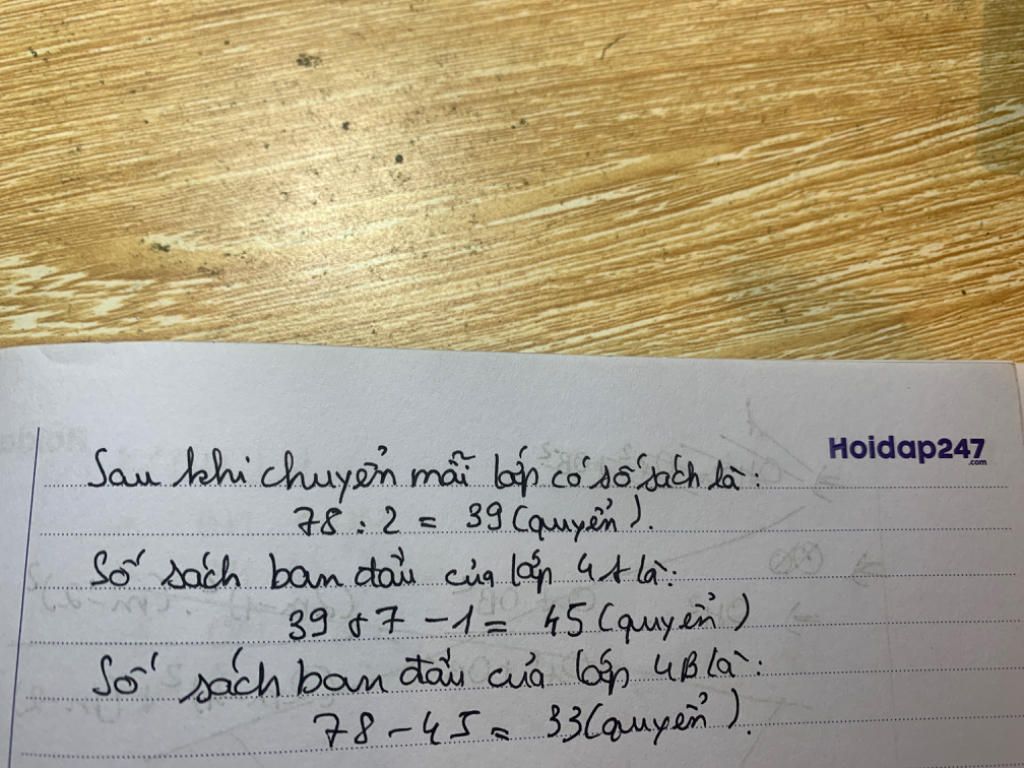 Hoidap247
.com
Sau khi chuyển mỗi lớp có số sách là:
78 : 2 = 39 (quyển).
Số sách ban đầu của lớp 4A là:
39 + 7 - 1 = 45 (quyển)
Số sách ban đầu của lớp 4B là:
78 - 45 = 33 (quyển).